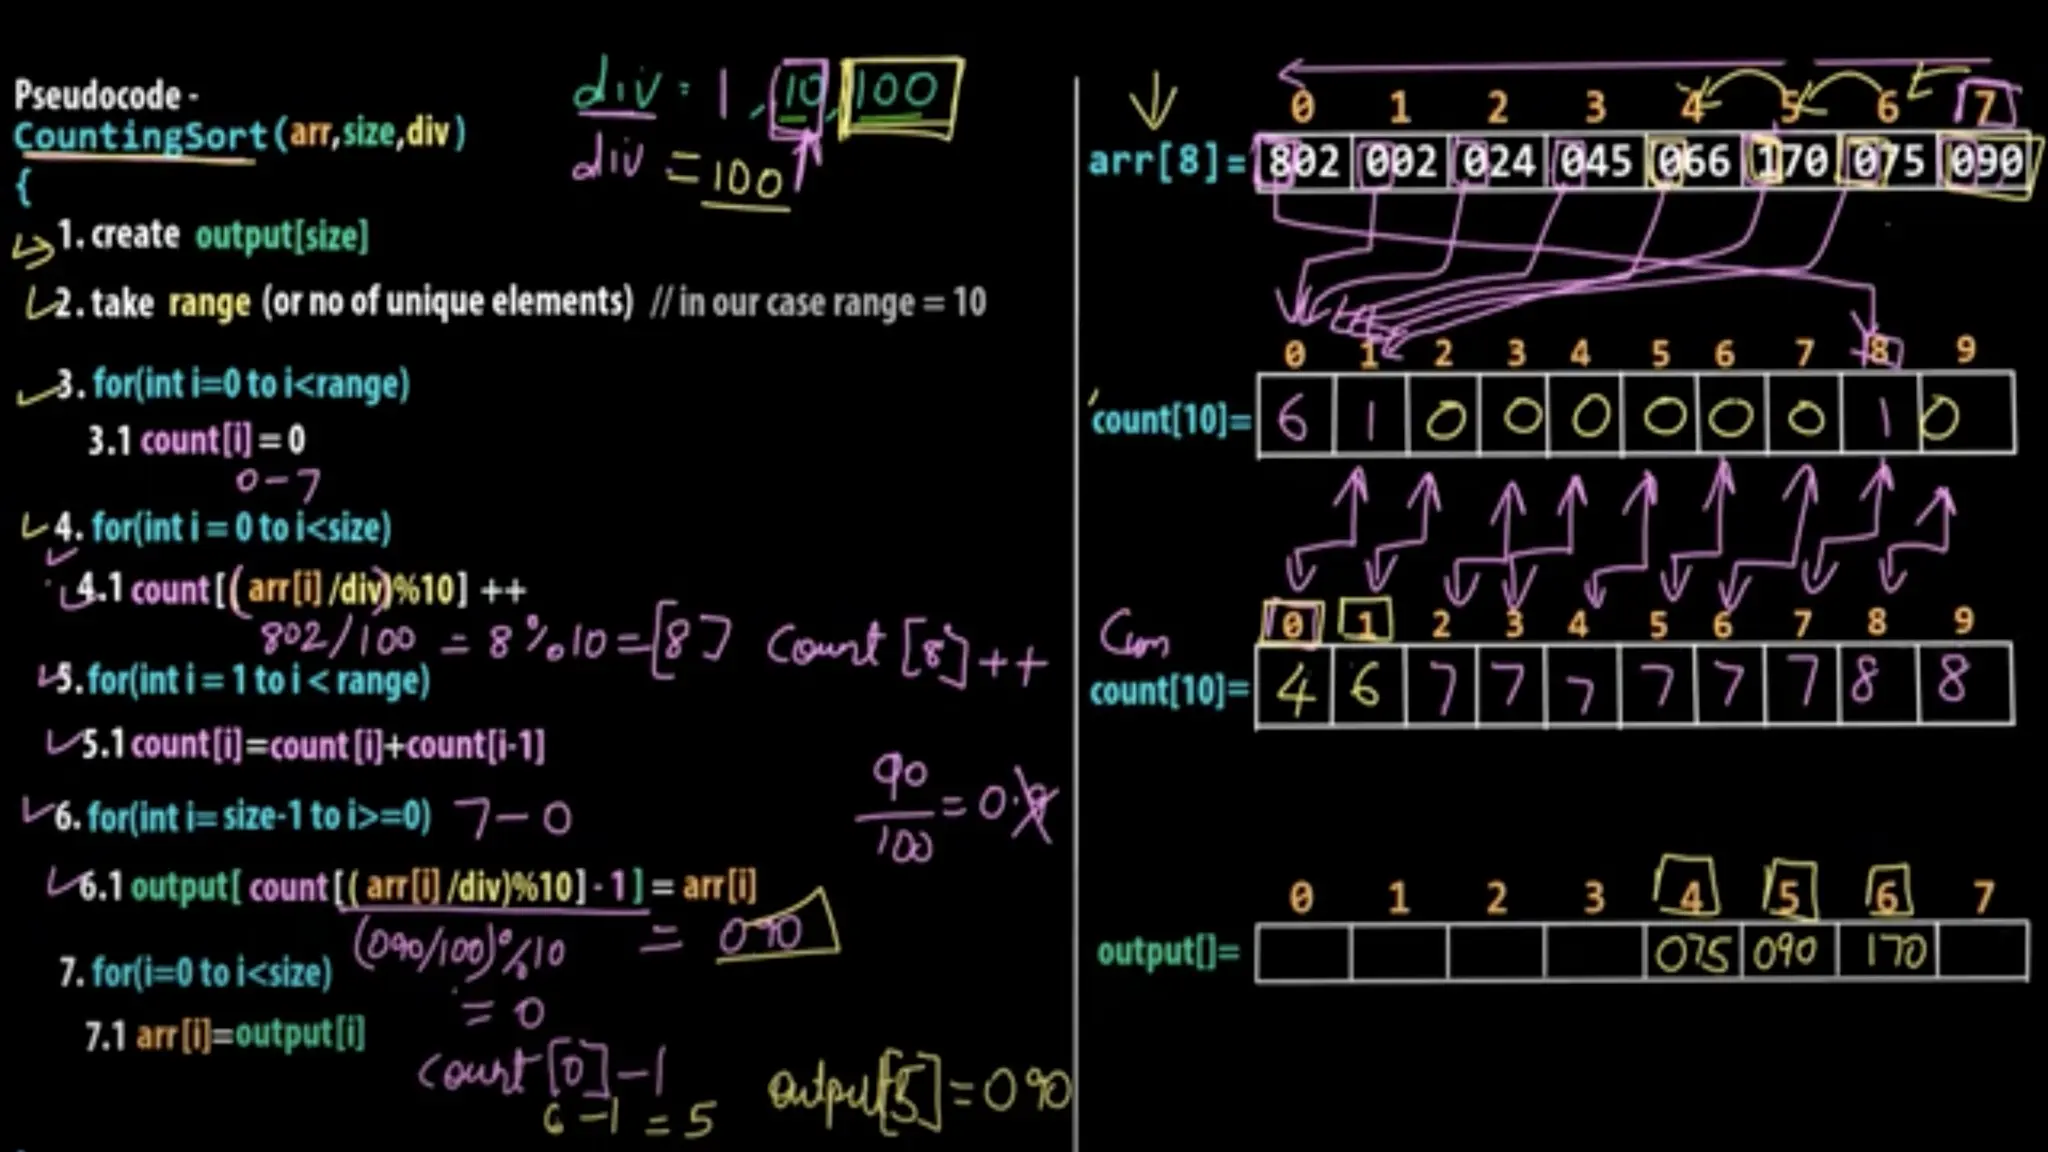 Pseudocode -
CountingSort(arr,size,div)
{
1. create output[size]
2. take range (or no of unique elements) // in our case range = 10
3. for(int i=0 to i<range)
3.1 count[i] = 0
0-7
4. for(int i = 0 to i<size)
4.1 count[(arr[i]/div)%10] ++
802/100 = 8%10=[8] Count [8]++
5.for(int i = 1 to i < range)
5.1 count[i]=count[i]+count[i-1]
6. for(int i= size-1 to i>=0) 7-0
6.1 output[ count[(arr[i]/div)%10] - 1] = arr[i]
(090/100)%10 = 090
= 0
7. for(i=0 to i<size)
7.1 arr[i]=output[i]
count[0]-1
6-1 = 5
output[5]=090
div = 1, 10, 100
div = 100
90
100
= 0.9
0 1 2 3 4 5 6 7
arr[8]= 802 002 024 045 066 170 075 090
0 1 2 3 4 5 6 7 8 9
count[10]= 6 1 0 0 0 0 0 0 1 0
Cum
0 1 2 3 4 5 6 7 8 9
count[10]= 4 6 7 7 7 7 7 7 8 8
0 1 2 3 4 5 6 7
output[]= 075 090 170